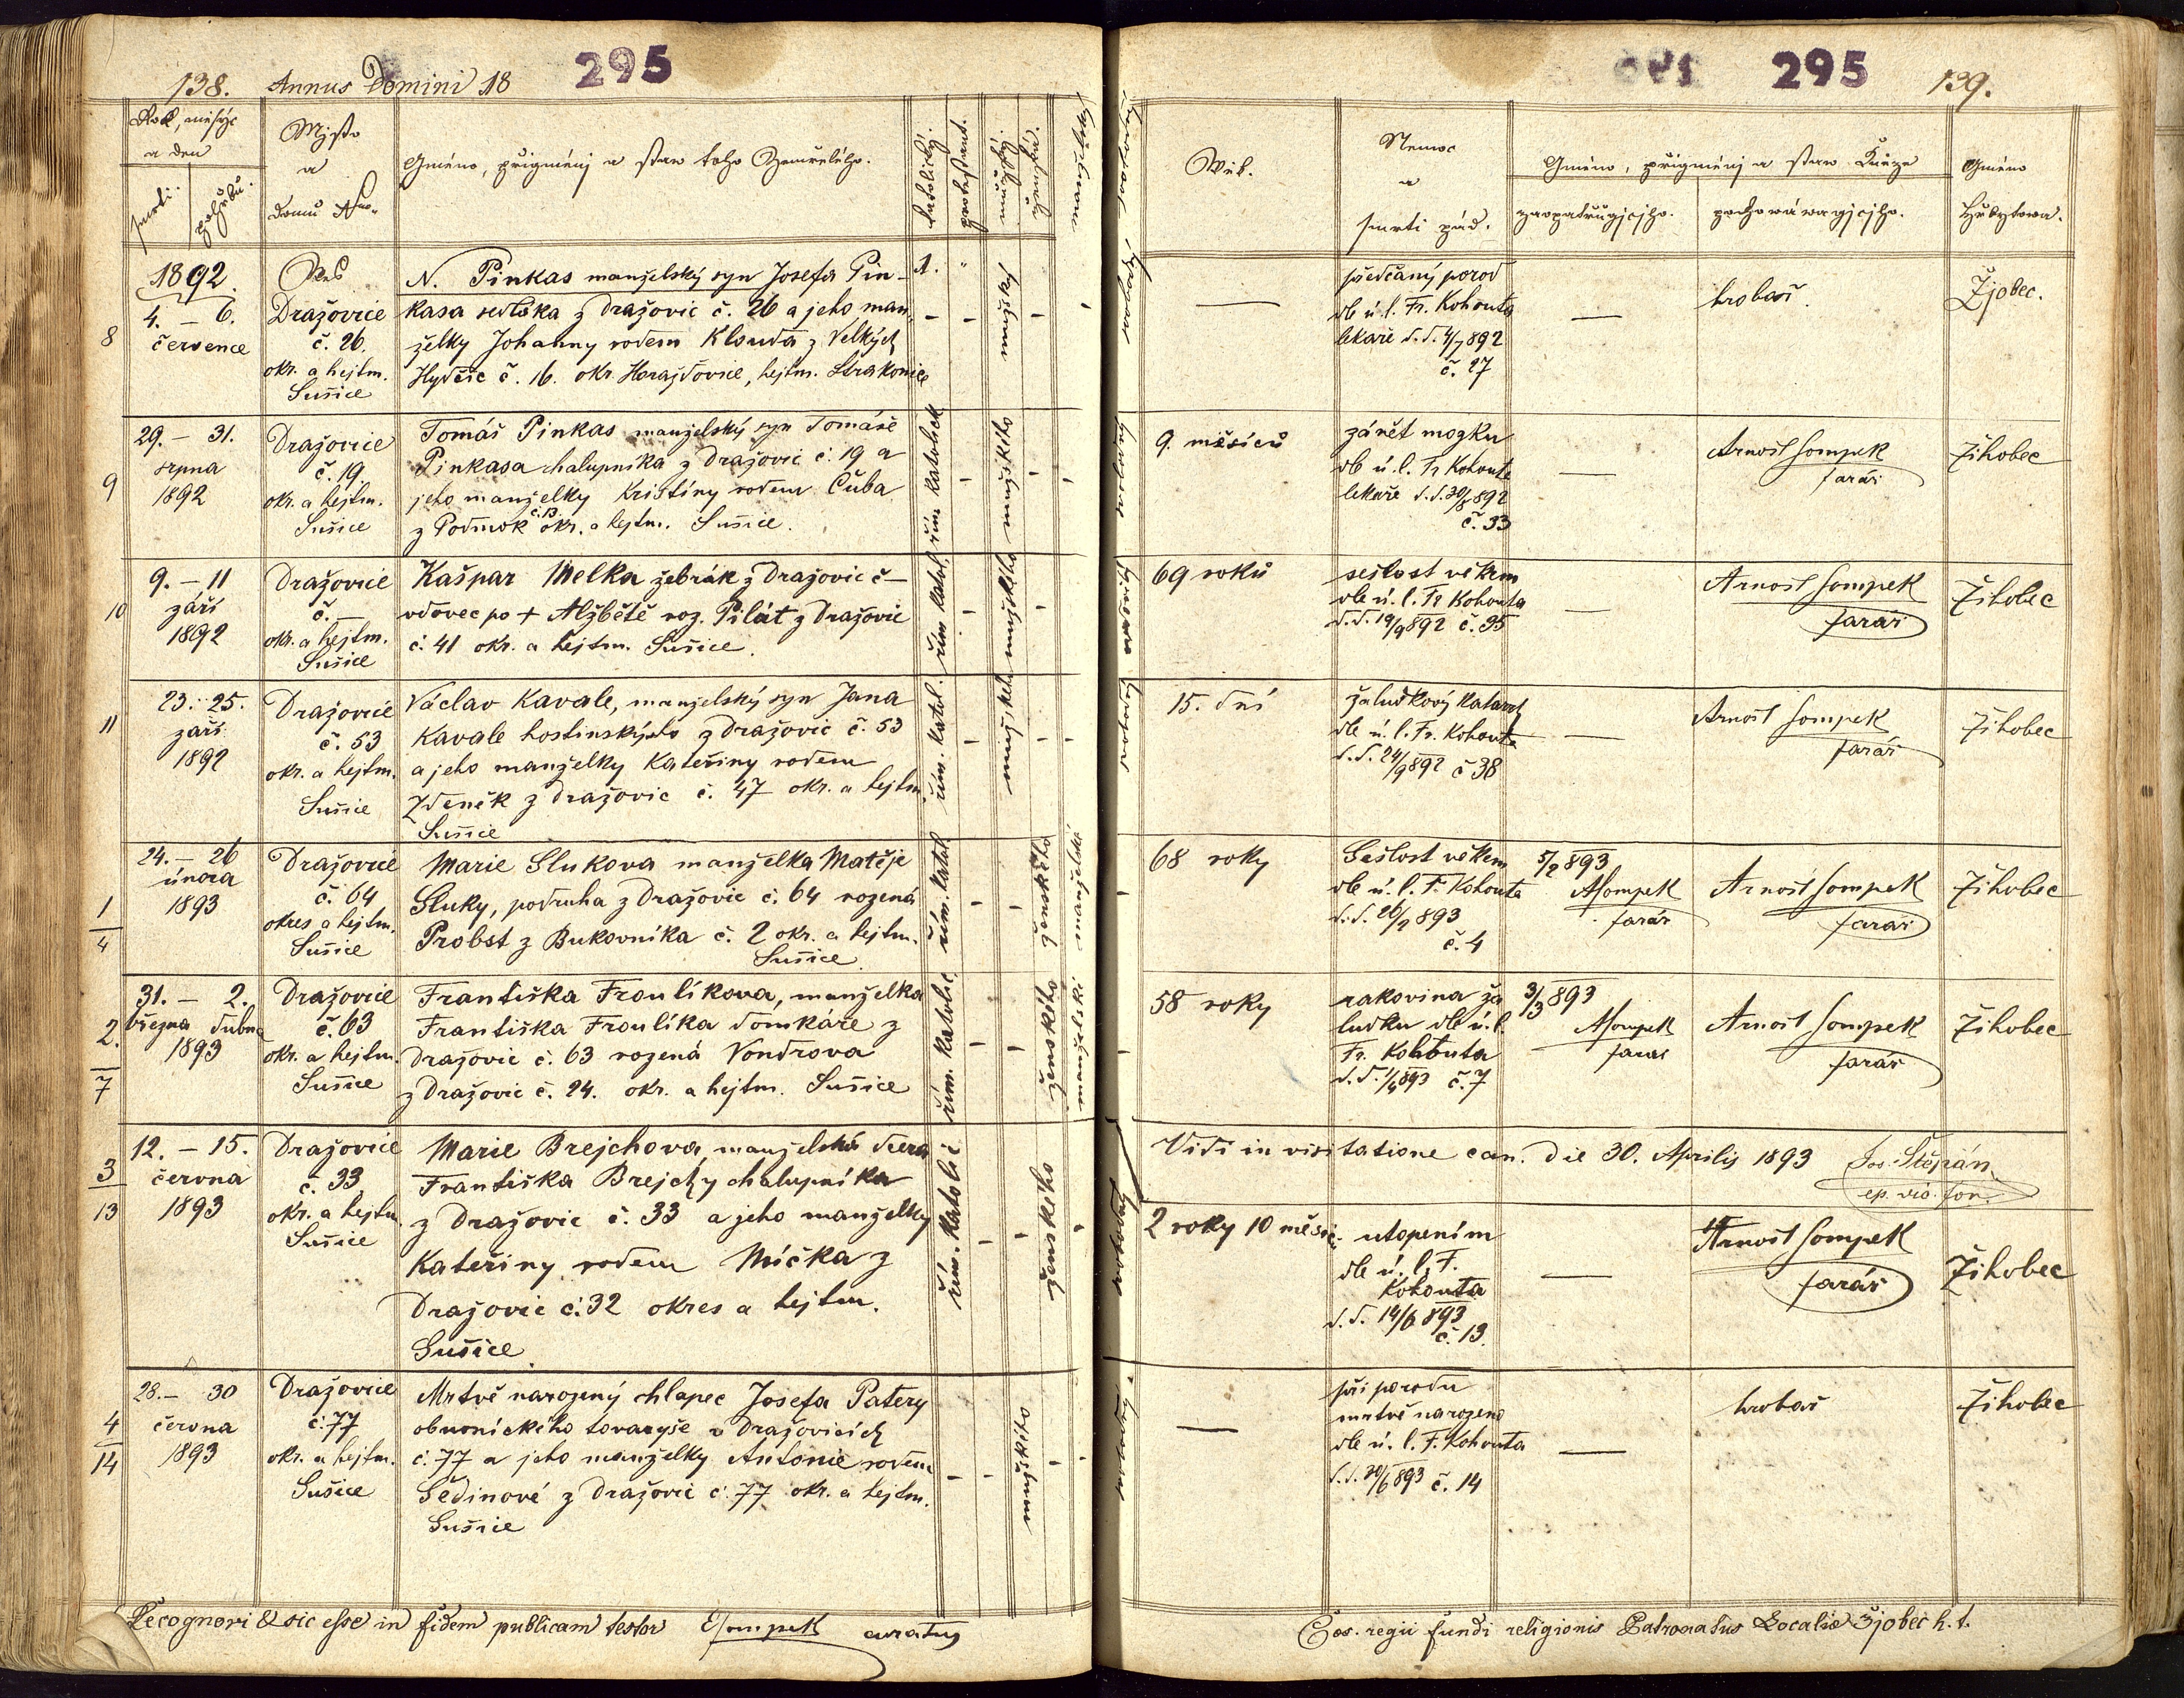 138. Annus Domini 18 295
Rok, měsýc
a den
smrti. pohřbu.
Mjsto
a
domu Nro.
Gméno, přigménj a staw toho Zemřelého.
katolický.
protestant.
mužský.
ženská.
manželské
1892.
8
4. – 6.
července
Ves
Dražovice
č. 26.
okr. a hejtm.
Sušice
N. Pinkas manželský syn Josefa Pin-
kasa sedláka z Dražovic č. 26 a jeho man
želky Johanny rodem Klouda z Velkých
Hydčic č. 16. okr. Horažďovice, hejtm. Strakonice
1.
mužský
9
29. – 31.
srpna
1892
Dražovice
č. 19.
okr. a hejtm.
Sušice
Tomáš Pinkas manželský syn Tomáše
Pinkasa chalupníka z Dražovic č. 19 a
jeho manželky Kristiny rodem Čuba
z Podmok č. 13. okr. a hejtm. Sušice.
řím katolick
mužského
10
9. – 11
září
1892
Dražovice
č. –
okr. a hejtm.
Sušice
Kašpar Melka žebrák z Dražovic č –
vdovec po + Alžbětě roz. Pilát z Dražovic
č. 41 okr. a hejtm. Sušice.
řím katol.
mužského
11
23. 25.
září
1892
Dražovice
č. 53
okr. a hejtm.
Sušice
Václav Kavale, manželský syn Jana
Kavale hostinského z Dražovic č. 53
a jeho manželky Kateřiny rodem
Zdeněk z Dražovic č. 47 okr. a hejtm
Sušice
řím. katol.
1
4
24. – 26
února
1893
Dražovice
č. 64
okres a hejtm.
Sušice
Marie Slukova manželka Matěje
Sluky, podruha z Dražovic č. 64 rozená
Probst z Bukovníka č. 2 okr. a hejtm.
Sušice
řím. katol
ženského
manželské
2.
7
31. – 2.
března dubna
1893
Dražovice
č. 63
okr. a hejtm.
Sušice
Františka Froulíkova, manželka
Františka Froulíka domkáře z
Dražovic č. 63 rozená Vondrova
z Dražovic č. 24. okr. a hejtm. Sušice
řím. katolic.
ženského
manželské
3
13
12. – 15.
června
1893
Dražovice
č. 33
okr. a hejtm.
Sušice
Marie Brejchova, manželská dcera
Františka Brejchy chalupníka
z Dražovic č. 33 a jeho manželky
Kateřiny rodem Míčka z
Dražovic č. 32 okres a hejtm.
Sušice
řím. katolic
ženského
4
14
28. – 30
června
1893
Dražovice
č. 77
okr. a hejtm.
Sušice
Mrtvě narozený chlapec Josefa Patery
obuvnického tovaryše v Dražovicích
č. 77 a jeho manželky Antonie rodem
Šedinové z Dražovic č. 77 okr. a hejtm.
Sušice
mužského
Recognovi & sic esse in fidem publicam testor ESompek curatus
295 139.
Wěk.
Nemoc
a
smrti způs.
Gméno, přigménj a staw Kněze
zaopatřugjcjho.
pochowáwagjcjho.
Gméno
Hřbytowa.
—
předčasný porod
dle ú. l. Fr. Kohouta
lekaře d. d. 4/7 892
č. 27
—
hrobař.
Žjobec.
9. měsíců
zánět mozku
dle ú. l. Fr Kohouta
lekaře d. d. 30/8 892
č. 33
—
Arnošt Sompek
farář
Žihobec
69 roků
sešlost věkem
dle ú. l. Fr Kohouta
d. d. 19/9 892 č. 35
—
Arnošt Sompek
farář
Žihobec
15. dní
žaludkový katarrh
dle ú. l. Fr. Kohouta
d. d. 24/9 892 č 38
—
Arnošt Sompek
farář
Žihobec
68 roky
Sešlost věkem
dle ú. l. F. Kohouta
d. d. 26/2 893
č. 4
5/2 893
ASompek
farář
Arnošt Sompek
farář
Žihobec
58 roky
rakovina ža
ludku dle ú. l.
Fr. Kohouta
d. d. 1/4 893 č. 7
3/3 893
ASompek
farář
Arnošt Sompek
farář
Žihobec
Vidi in visitatione can. die 30. Aprilis 1893 Jos. Štěpán
ep. vic. for.
2 roky 10 měsíc.
utopením
dle ú. l. F.
Kohouta
d. d. 14/6 893
č. 13.
—
Arnošt Sompek
farář
Žihobec
—
při porodu
mrtvě narozeno
dle ú. l. F. Kohouta
d. d. 30/6 893 č. 14
—
hrobař
Žihobec
Cæs. regii fundi religionis Patronatus Localiæ Žjobec h. t.